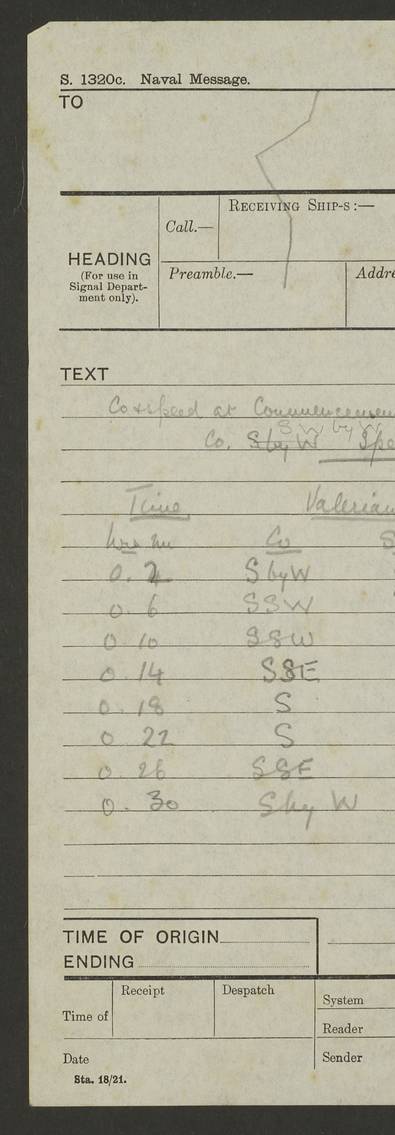 S. 1320c. Naval Message.
TO
RECEIVING SHIP-S :—
Call.—
HEADING
(For use in
Signal Depart-
ment only).
Preamble.— Addre
TEXT
Co & speed at Commencemen
SW by W
Co. S by W Spe
Time Valerian
hrs m Co S
0. 2 S by W
0. 6 SSW
0 10 SSW
0. 14 SSE
0. 18 S
0 22 S
0. 26 SSE
0. 30 S by W
TIME OF ORIGIN
ENDING
Receipt Despatch System
Time of
Reader
Date Sender
Sta. 18/21.